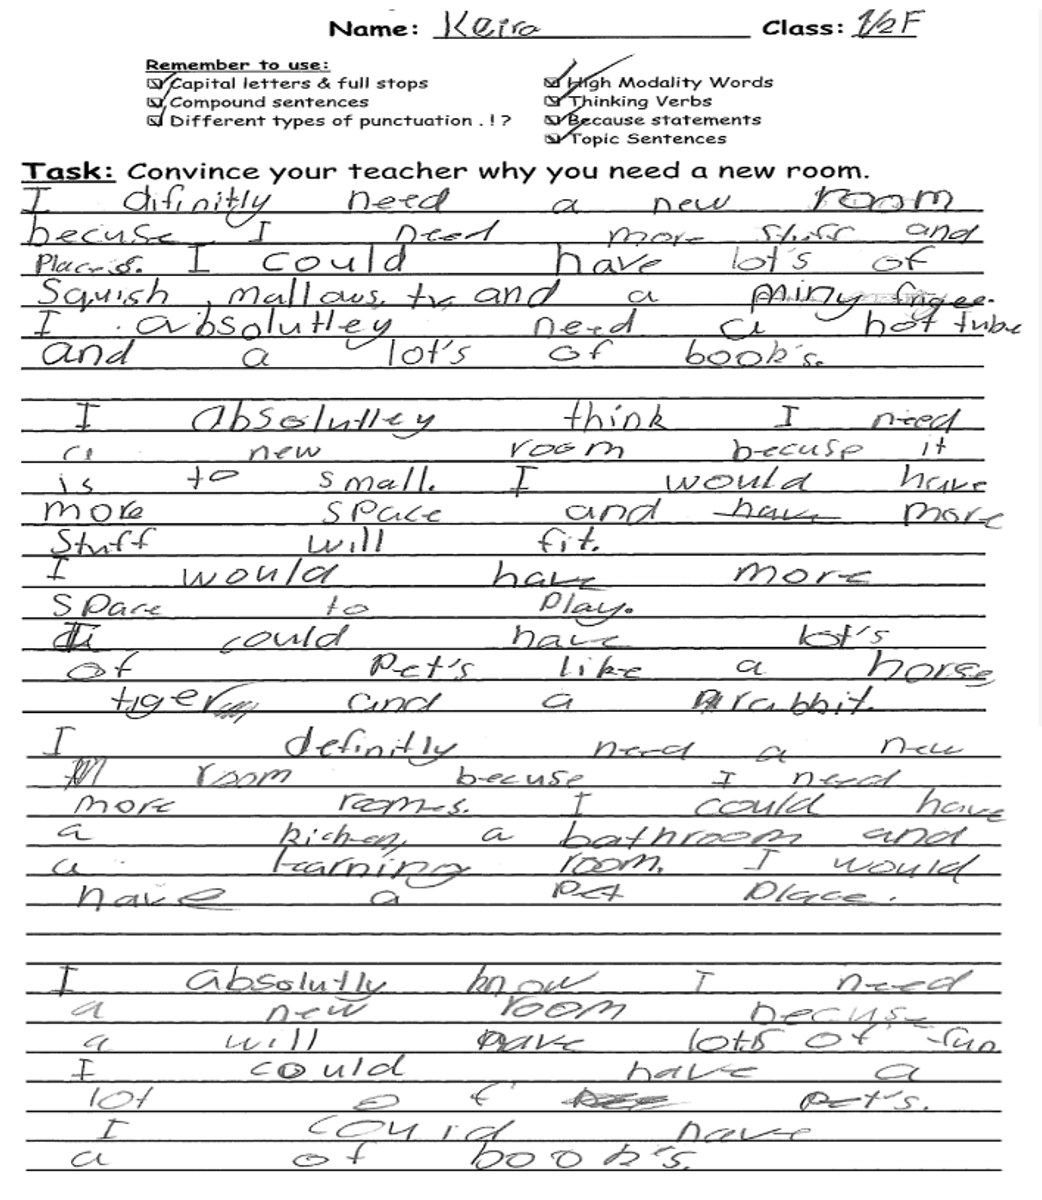 Name: Keira Class: 1/2F
Remember to use:
Capital letters & full stops
Compound sentences
Different types of punctuation . ! ?
High Modality Words
Thinking Verbs
Because statements
Topic Sentences
Task: Convince your teacher why you need a new room.
I difinitly need a new room
becuse I need more stuff and
Places. I could have lot's of
Squish, mallows, tv, and a miny frigee.
I absolutley need a hot tube
and a lot's of book's.
I absolutley think I need
a new room becuse it
is to small. I would have
more space and have more
Stuff will fit.
I would have more
space to play.
I could have lot's
of Pet's like a horse
tiger and a rabbit.
I definitly need a new
room becuse I need
more rooms. I could have
a kichen, a bathroom and
a room. I would
have a Pet Place.
I absolutly know I need
a new room becuse
a will have lots of fun
I could have a
lot of pet's.
I could have
a of book's.